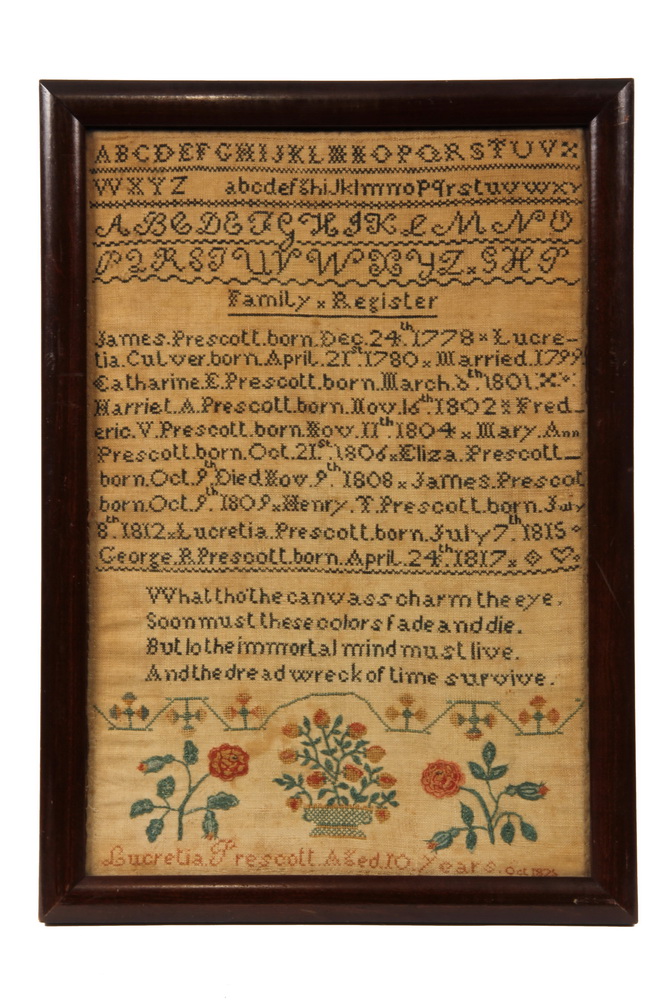 ABCDEFGHIJKLMNOPQRSTUVX
WXYZ abcdefghiJklmnopqrstuvwxy
ABCDEFGHIKLMNO
PQRSTUVWXYZ×GHP
Family × Register
James.Prescott.born.Dec.24th.1778×Lucre-
tia.Culver.born.April.21st.1780×Married.1799
Catharine.E.Prescott.born.March.8th.1801
Harriet.A.Prescott.born.Nov.16th.1802××Fred-
eric.V.Prescott.born.Nov.11th.1804×Mary.Ann
Prescott.born.Oct.21st.1806×Eliza.Prescott-
born.Oct.9th.Died.Nov.9th.1808×James.Prescot
born.Oct.9th.1809×Henry.T.Prescott.born.July
8th.1812×Lucretia.Prescott.born.July 7th.1815
George.R.Prescott.born.April.24th.1817×
What tho'the canvass charm the eye.
Soon must these colors fade and die.
But lo the immortal mind must live.
And the dread wreck of time survive.
Lucretia.Prescott.Aged.10 Years. Oct